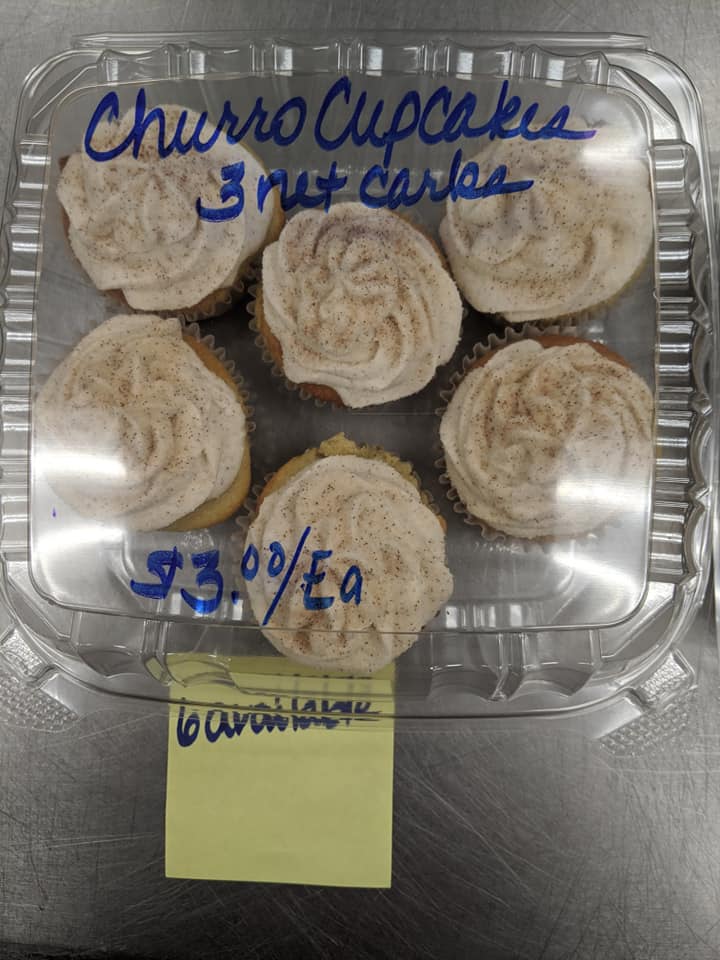 Churro Cupcakes
3 net carbs
$3.00/Ea
6 available